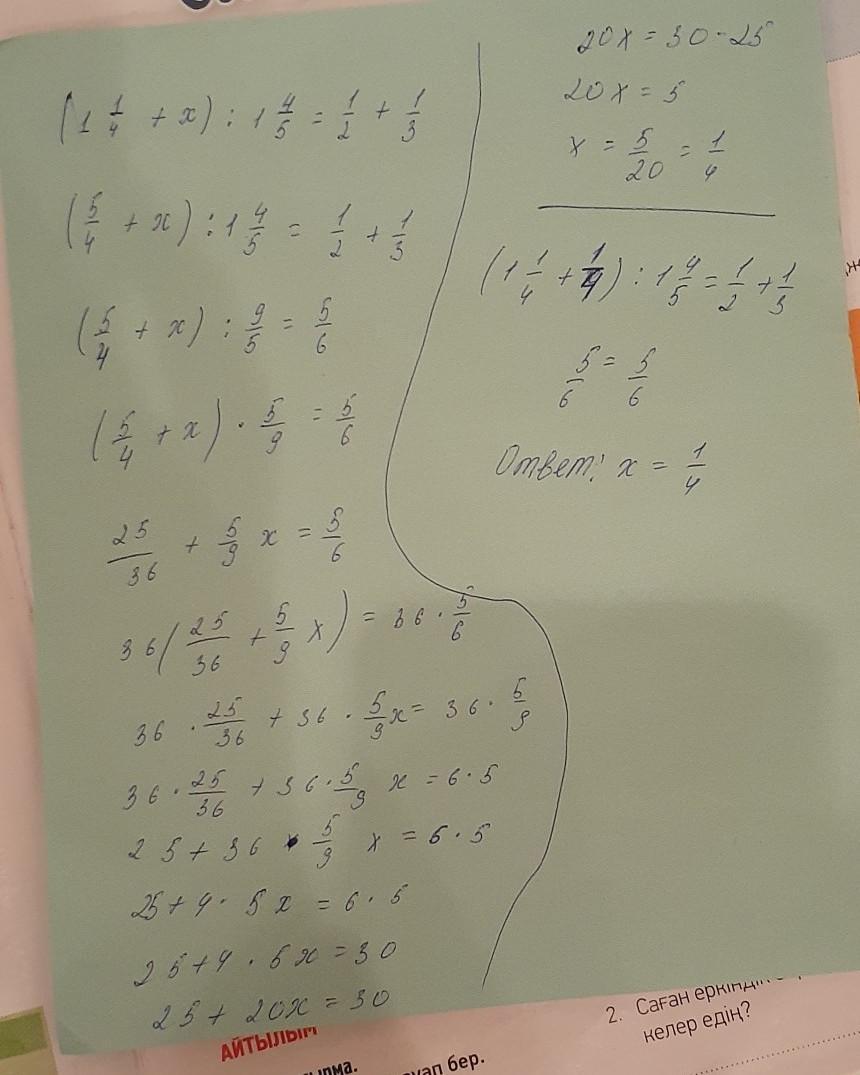 (1 1/4 + x) : 1 4/5 = 1/2 + 1/3
(5/4 + x) : 1 4/5 = 1/2 + 1/3
(5/4 + x) : 9/5 = 5/6
(5/4 + x) · 5/9 = 5/6
25/36 + 5/9 x = 5/6
36(25/36 + 5/9 x) = 36 · 5/6
36 · 25/36 + 36 · 5/9 x = 36 · 5/9
36 · 25/36 + 36 · 5/9 x = 6 · 5
25 + 36 · 5/9 x = 6 · 5
25 + 4 · 5x = 6 · 5
25 + 4 · 5x = 30
25 + 20x = 30
20x = 30 - 25
20x = 5
x = 5/20 = 1/4
(1 1/4 + 1/4) : 1 4/5 = 1/2 + 1/3
5/6 = 5/6
Ответ: x = 1/4
АЙТЫЛЫМ
бер.
2. Саған
келер едің?